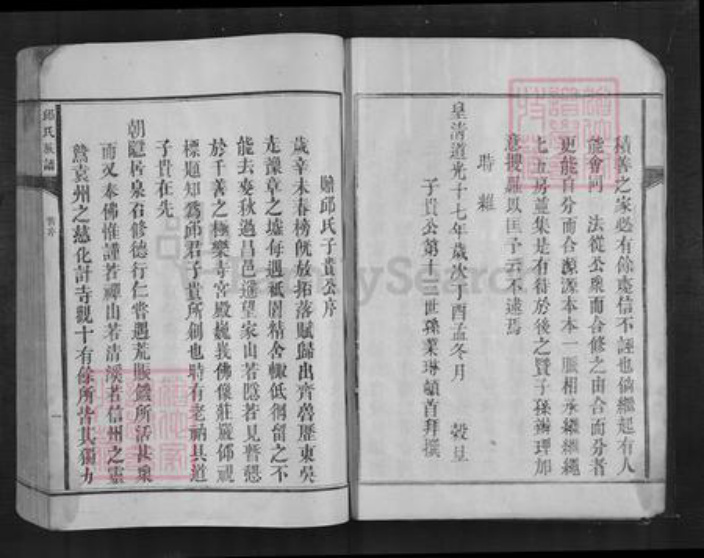 積善之家必有餘慶信不誣也倘繼起有人
能會同　法從公衆而合修之由合而分者
更能自分而合源源本本一脈相承繼繼繩
七五房並集是有待於後之賢子孫辦理加
意搜羅以匡予云不逮焉
時雍
皇清道光十七年歲次丁酉孟冬月　穀旦
子貴公第十一世孫業琳頓首拜撰
贈邱氏子貴公序
歲辛未春榜旣放拓落賦歸出齊魯歷東吳
走豫章之墟每遇祇園精舍輒低徊留之不
能去麥秋過昌邑遙望家山若隱若見暫憩
於千善之極樂寺宮殿巍峩佛像莊嚴仰視
標題知爲邱君子貴所創也時有老衲其道
子貴在先
朝隱居泉石修德行仁嘗遇荒賑饑所活甚衆
而又奉佛惟謹若禪山若清溪若信州之靈
鷲袁州之慈化計寺觀十有餘所皆其獨力
邱氏族譜
FamilySearch